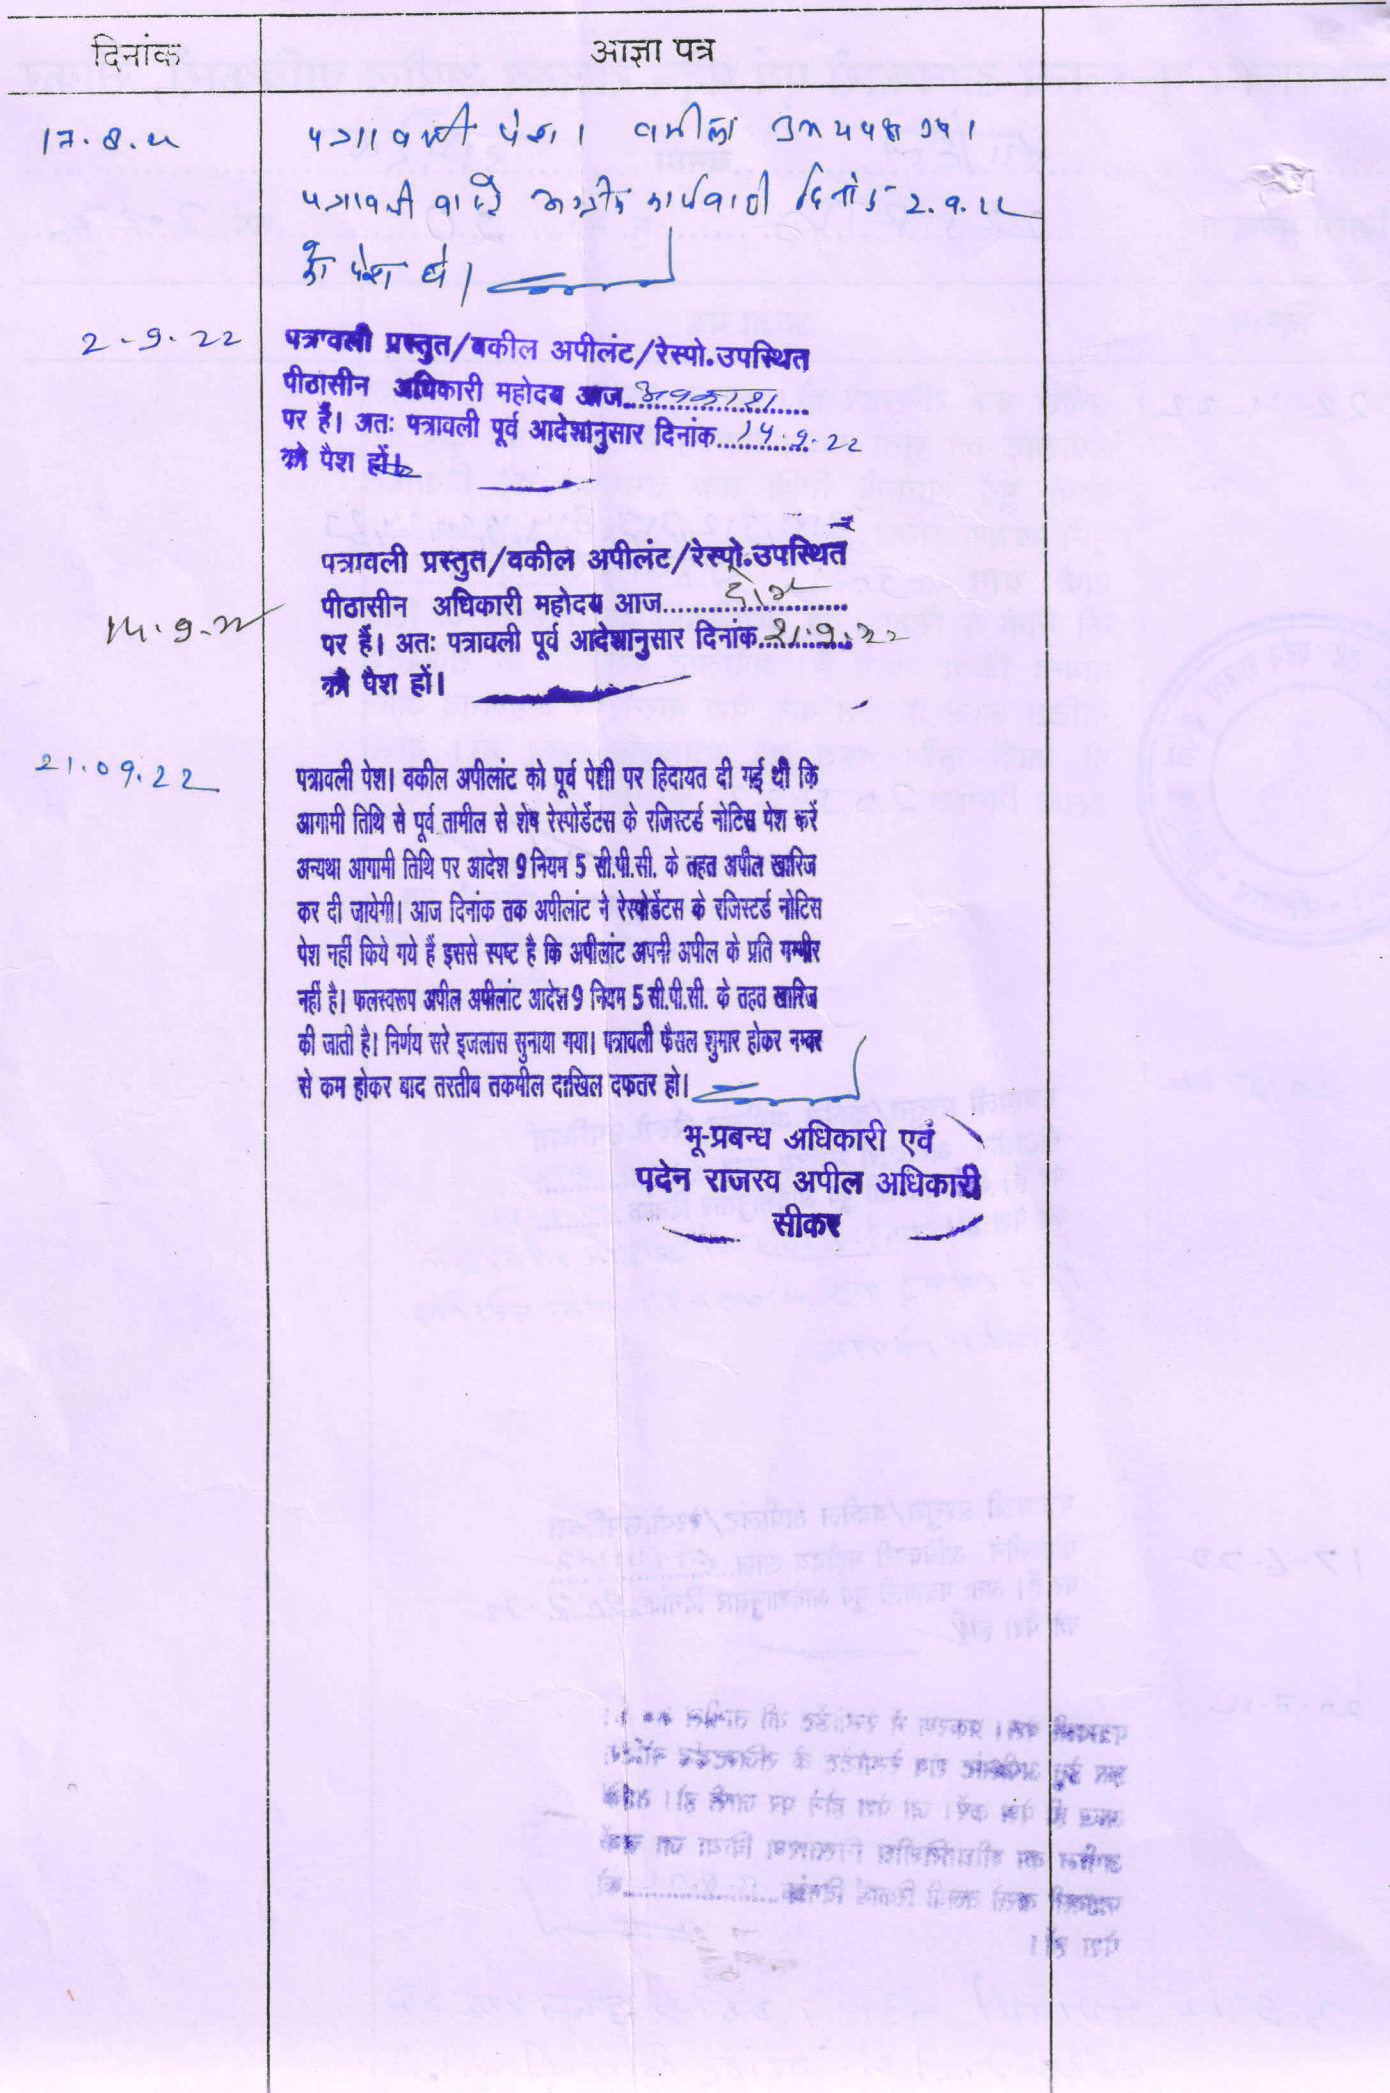 दिनांक
आज्ञा पत्र
17.8.22
पत्रावली पेश। वकील उभयपक्ष उप।
पत्रावली वास्ते अग्रीम कार्यवाही दिनांक 2.9.22
को पेश हो।
2-9-22
पत्रावली प्रस्तुत/वकील अपीलंट/रेस्पो.उपस्थित
पीठासीन अधिकारी महोदय आज...अवकाश...
पर हैं। अतः पत्रावली पूर्व आदेशानुसार दिनांक...14.9.22
को पैश हों।
पत्रावली प्रस्तुत/वकील अपीलंट/रेस्पो.उपस्थित
पीठासीन अधिकारी महोदय आज...
14.9.22
पर हैं। अतः पत्रावली पूर्व आदेशानुसार दिनांक 21.9.22
को पैश हों।
21.09.22
पत्रावली पेश। वकील अपीलांट को पूर्व पेशी पर हिदायत दी गई थी कि
आगामी तिथि से पूर्व तामील से शेष रेस्पोडेंटस के रजिस्टर्ड नोटिस पेश करें
अन्यथा आगामी तिथि पर आदेश 9 नियम 5 सी.पी.सी. के तहत अपील खारिज
कर दी जायेगी। आज दिनांक तक अपीलांट ने रेस्पोडेंटस के रजिस्टर्ड नोटिस
पेश नहीं किये गये हैं इससे स्पष्ट है कि अपीलांट अपनी अपील के प्रति गम्भीर
नहीं है। फलस्वरूप अपील अपीलांट आदेश 9 नियम 5 सी.पी.सी. के तहत खारिज
की जाती है। निर्णय सरे इजलास सुनाया गया। पत्रावली फैसल शुमार होकर नम्बर
से कम होकर बाद तरतीव तकमील दाखिल दफतर हो।
भू-प्रबन्ध अधिकारी एवं
पदेन राजस्व अपील अधिकारी
सीकर